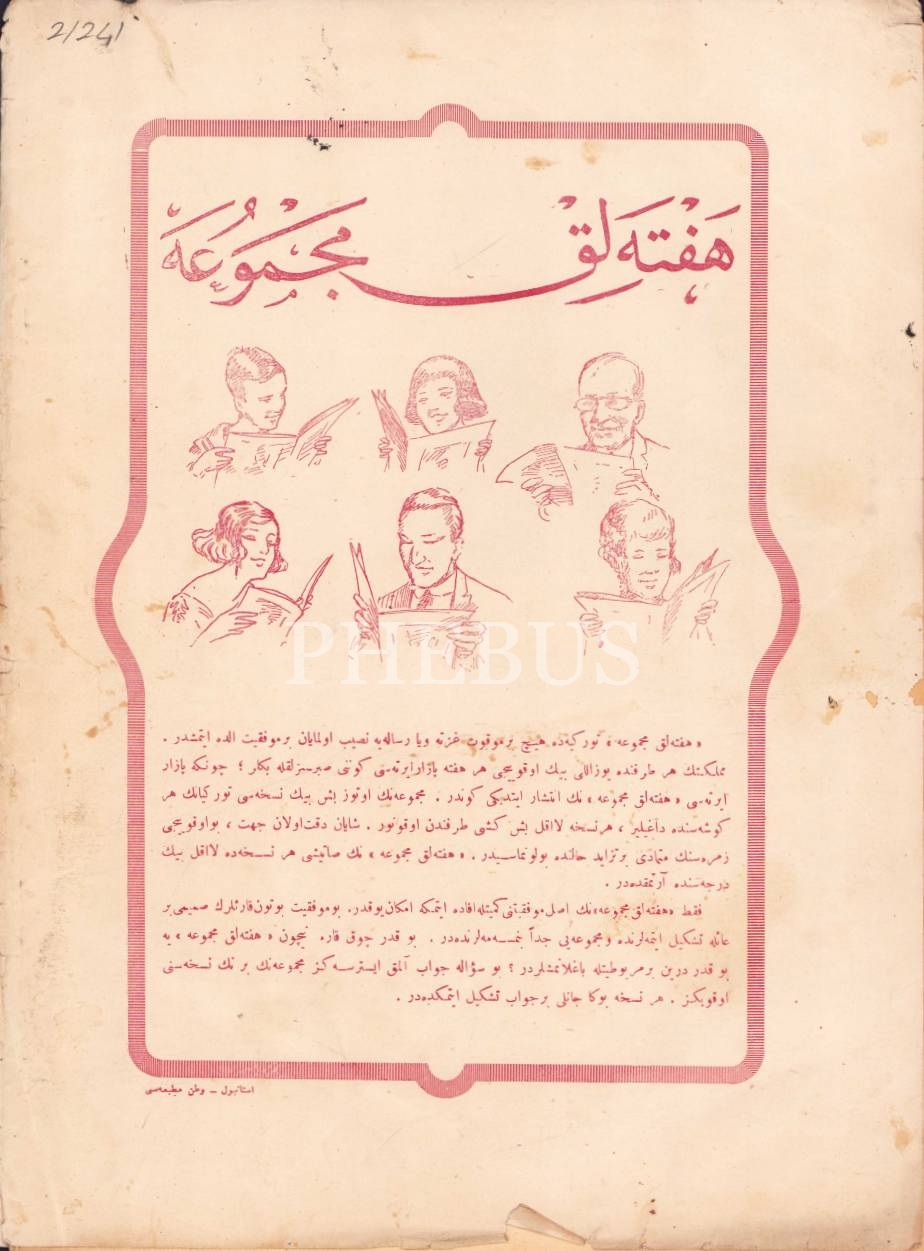 2/241
هفته لق مجموعه
PHEBUS
« هفته لق مجموعه » تورکیه ده هیچ بر موقوت غزته ویا رساله یه نصیب اولمایان بر موفقیت الده ایتمشدر .
مملکتك هر طرفنده یوز اللی بیك اوقویجی هر هفته پازار ایرته سی کونی صبرسزلقله بکلر ؛ چونکه پازار
ایرته سی « هفته لق مجموعه » نك انتشار ایتدیکی کوندر . مجموعه نك اوتوز بش بیك نسخه سی تورکیانك هر
کوشه سنده داغیلیر ، هر نسخه لااقل بش کشی طرفندن اوقونور . شایان دقت اولان جهت ، بو اوقویجی
زمره سنك متمادی بر تزاید حالنده بولونماسیدر . « هفته لق مجموعه » نك صاتیشی هر نسخه ده لااقل بیك
درجه سنده آرتمقده در .
فقط «هفته لق مجموعه»نك اصل موفقیتنی کمیتله افاده ایتمکه امکان یوقدر. بو موفقیت بوتون قارئلرك صمیمی بر
عائله تشکیل ایتمه لرنده و مجموعه یی جداً بنمسه مه لرنده در . بو قدر چوق قارء نیچون « هفته لق مجموعه » یه
بو قدر درین بر مربوطیتله باغلانمشلردر ؟ بو سؤاله جواب آلمق ایسترسه کز مجموعه نك بر نك نسخه سنی
اوقویکز . هر نسخه بوکا جانلی بر جواب تشکیل ایتمکده در .
استانبول ــ وطن مطبعه سی